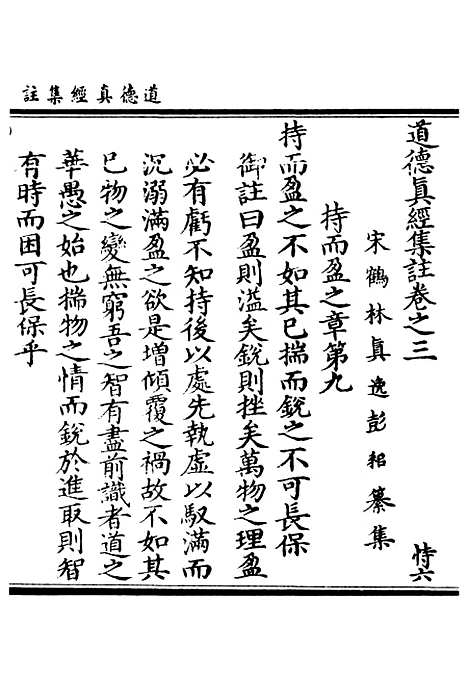 道德真經集註
道德真經集註卷之三　恃六
宋鶴林真逸彭耜纂集
持而盈之章第九
持而盈之不如其已揣而銳之不可長保
御註曰盈則溢矣銳則挫矣萬物之理盈
必有虧不知持後以處先執虛以馭滿而
沉溺滿盈之欲是增傾覆之禍故不如其
已物之變無窮吾之智有盡前識者道之
華愚之始也揣物之情而銳於進取則智
有時而困可長保乎